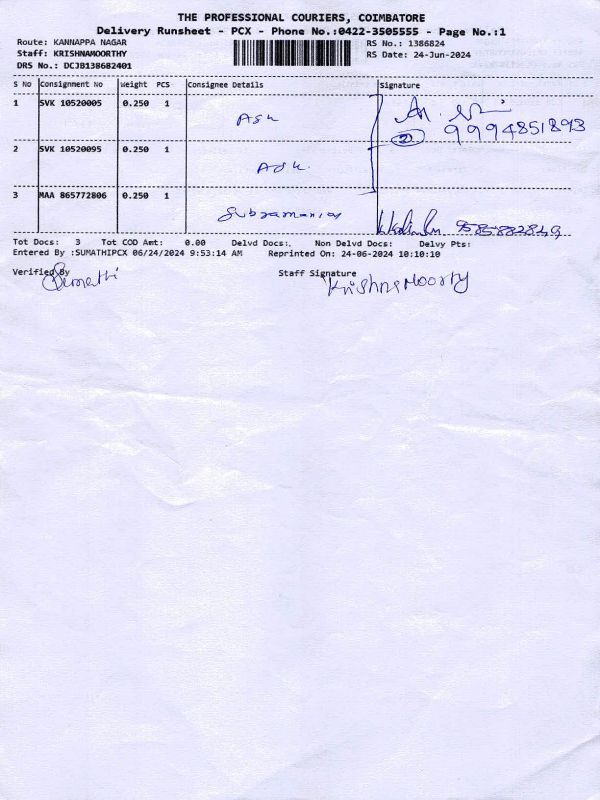 THE PROFESSIONAL COURIERS, COIMBATORE
Delivery Runsheet - PCX - Phone No.:0422-3505555 - Page No.:1
Route: KANNAPPA NAGAR
RS No.: 1386824
Staff: KRISHNAMOORTHY
RS Date: 24-Jun-2024
DRS No.: DCJB138682401
S No Consignment No Weight PCS Consignee Details Signature
1 SVK 10520005 0.250 1
9994851893
2 SVK 10520095 0.250 1
2
3 MAA 865772806 0.250 1
Subramanian
Tot Docs: 3 Tot COD Amt: 0.00 Delvd Docs:. Non Delvd Docs: Delvy Pts:
Entered By :SUMATHIPCX 06/24/2024 9:53:14 AM Reprinted On: 24-06-2024 10:10:10
Verified By Staff Signature
Sumathi KrishnaMoorty